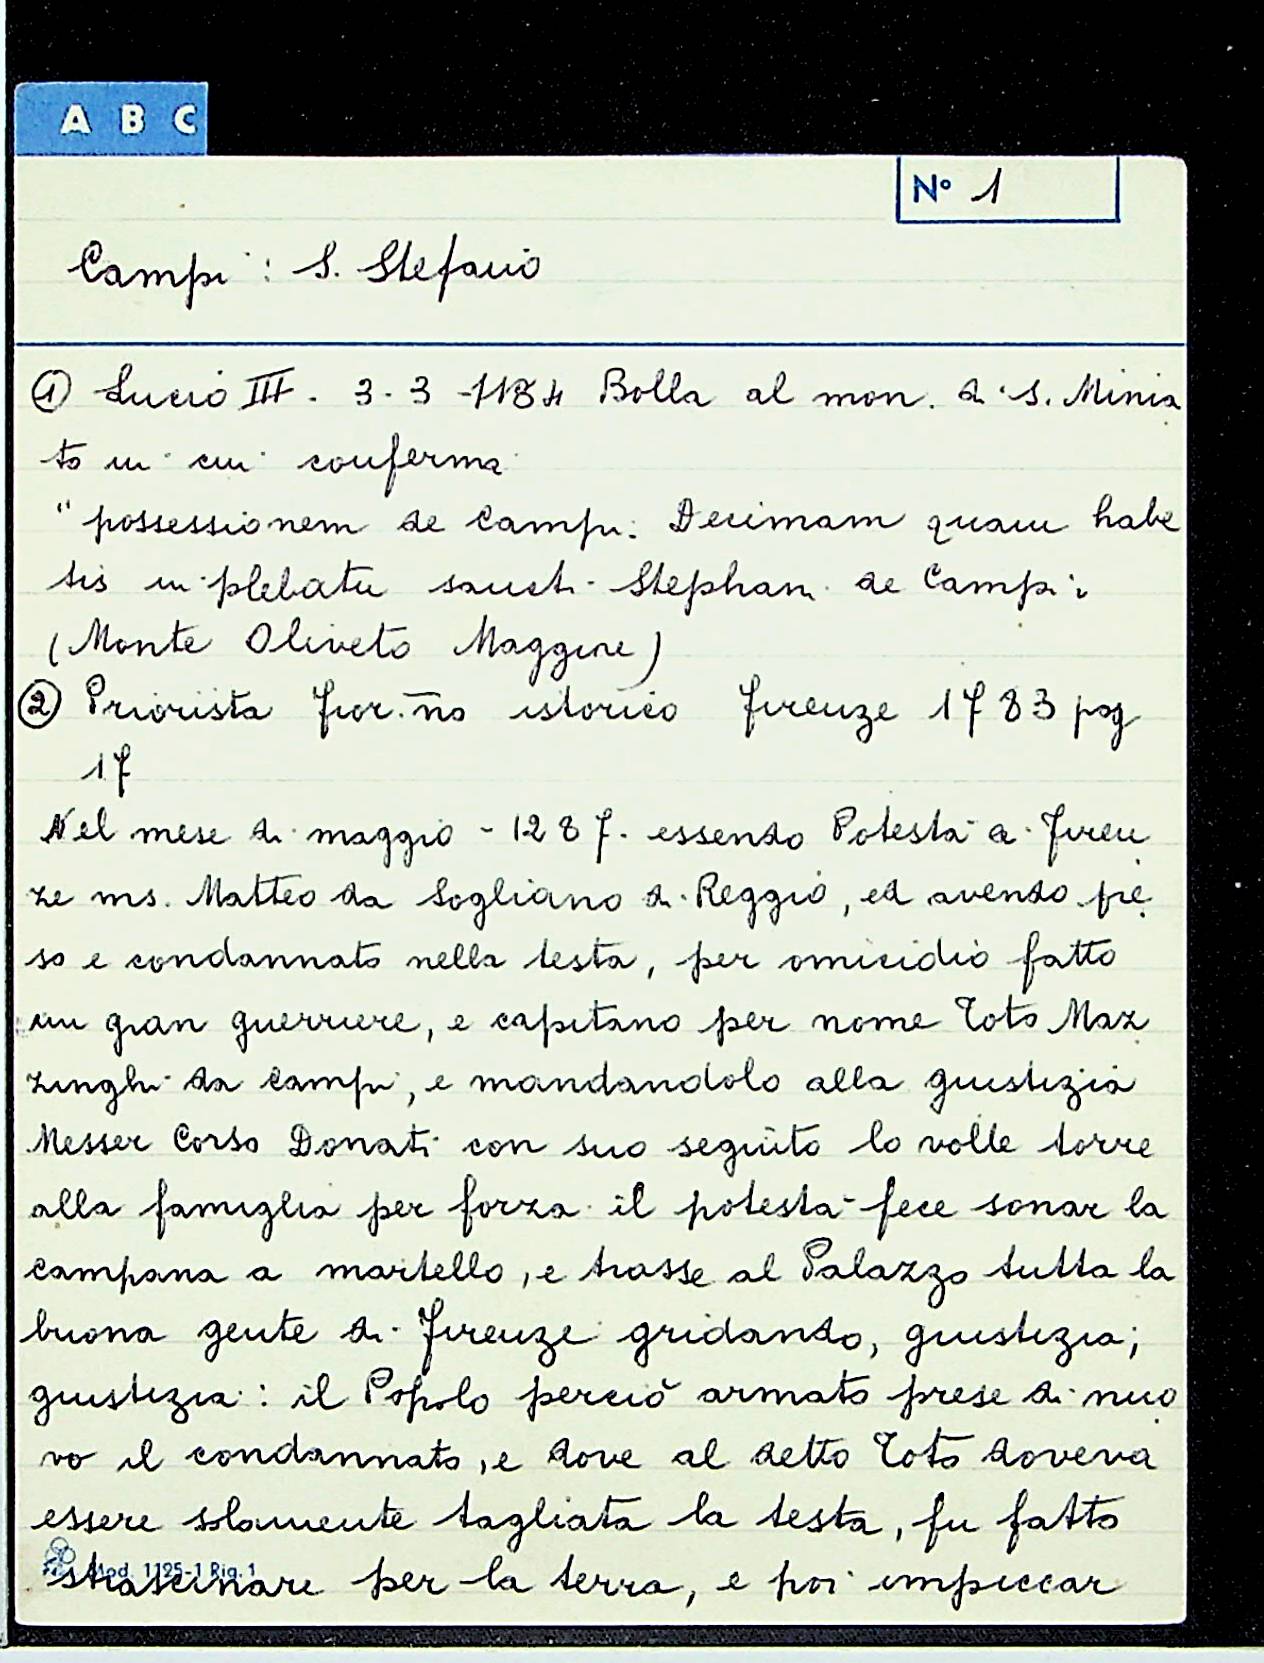 A B C
Nº 1
Campi : S. Stefano
① Lucio III. 3-3-1184 Bolla al mon. di S. Minia
to in cui conferma
"possessionem de Campi. Decimam quam habe
tis in plebatu sancti Stephani de Campi
(Monte Oliveto Maggiore)
② Priorista fior.no istorico Firenze 1783 pag
17
Nel mese di maggio - 1287. essendo Potestà a Firen
ze ms. Matteo da Sogliano di Reggio, ed avendo pre
so e condannato nella testa, per omicidio fatto
un gran guerriere, e capitano per nome Toto Maz
zinghi da Campi, e mandandolo alla giustizia
Messer Corso Donati con suo seguito lo volle torre
alla famiglia per forza il potestà fece sonar la
campana a martello, e trasse al Palazzo tutta la
buona gente di Firenze gridando, giustizia;
giustizia: il Popolo perciò armato prese di nuo
vo il condannato, e dove al detto Toto doveva
essere solamente tagliata la testa, fu fatto
Mod. 1125-1 Rig. 1
strascinare per la terra, e poi impiccar